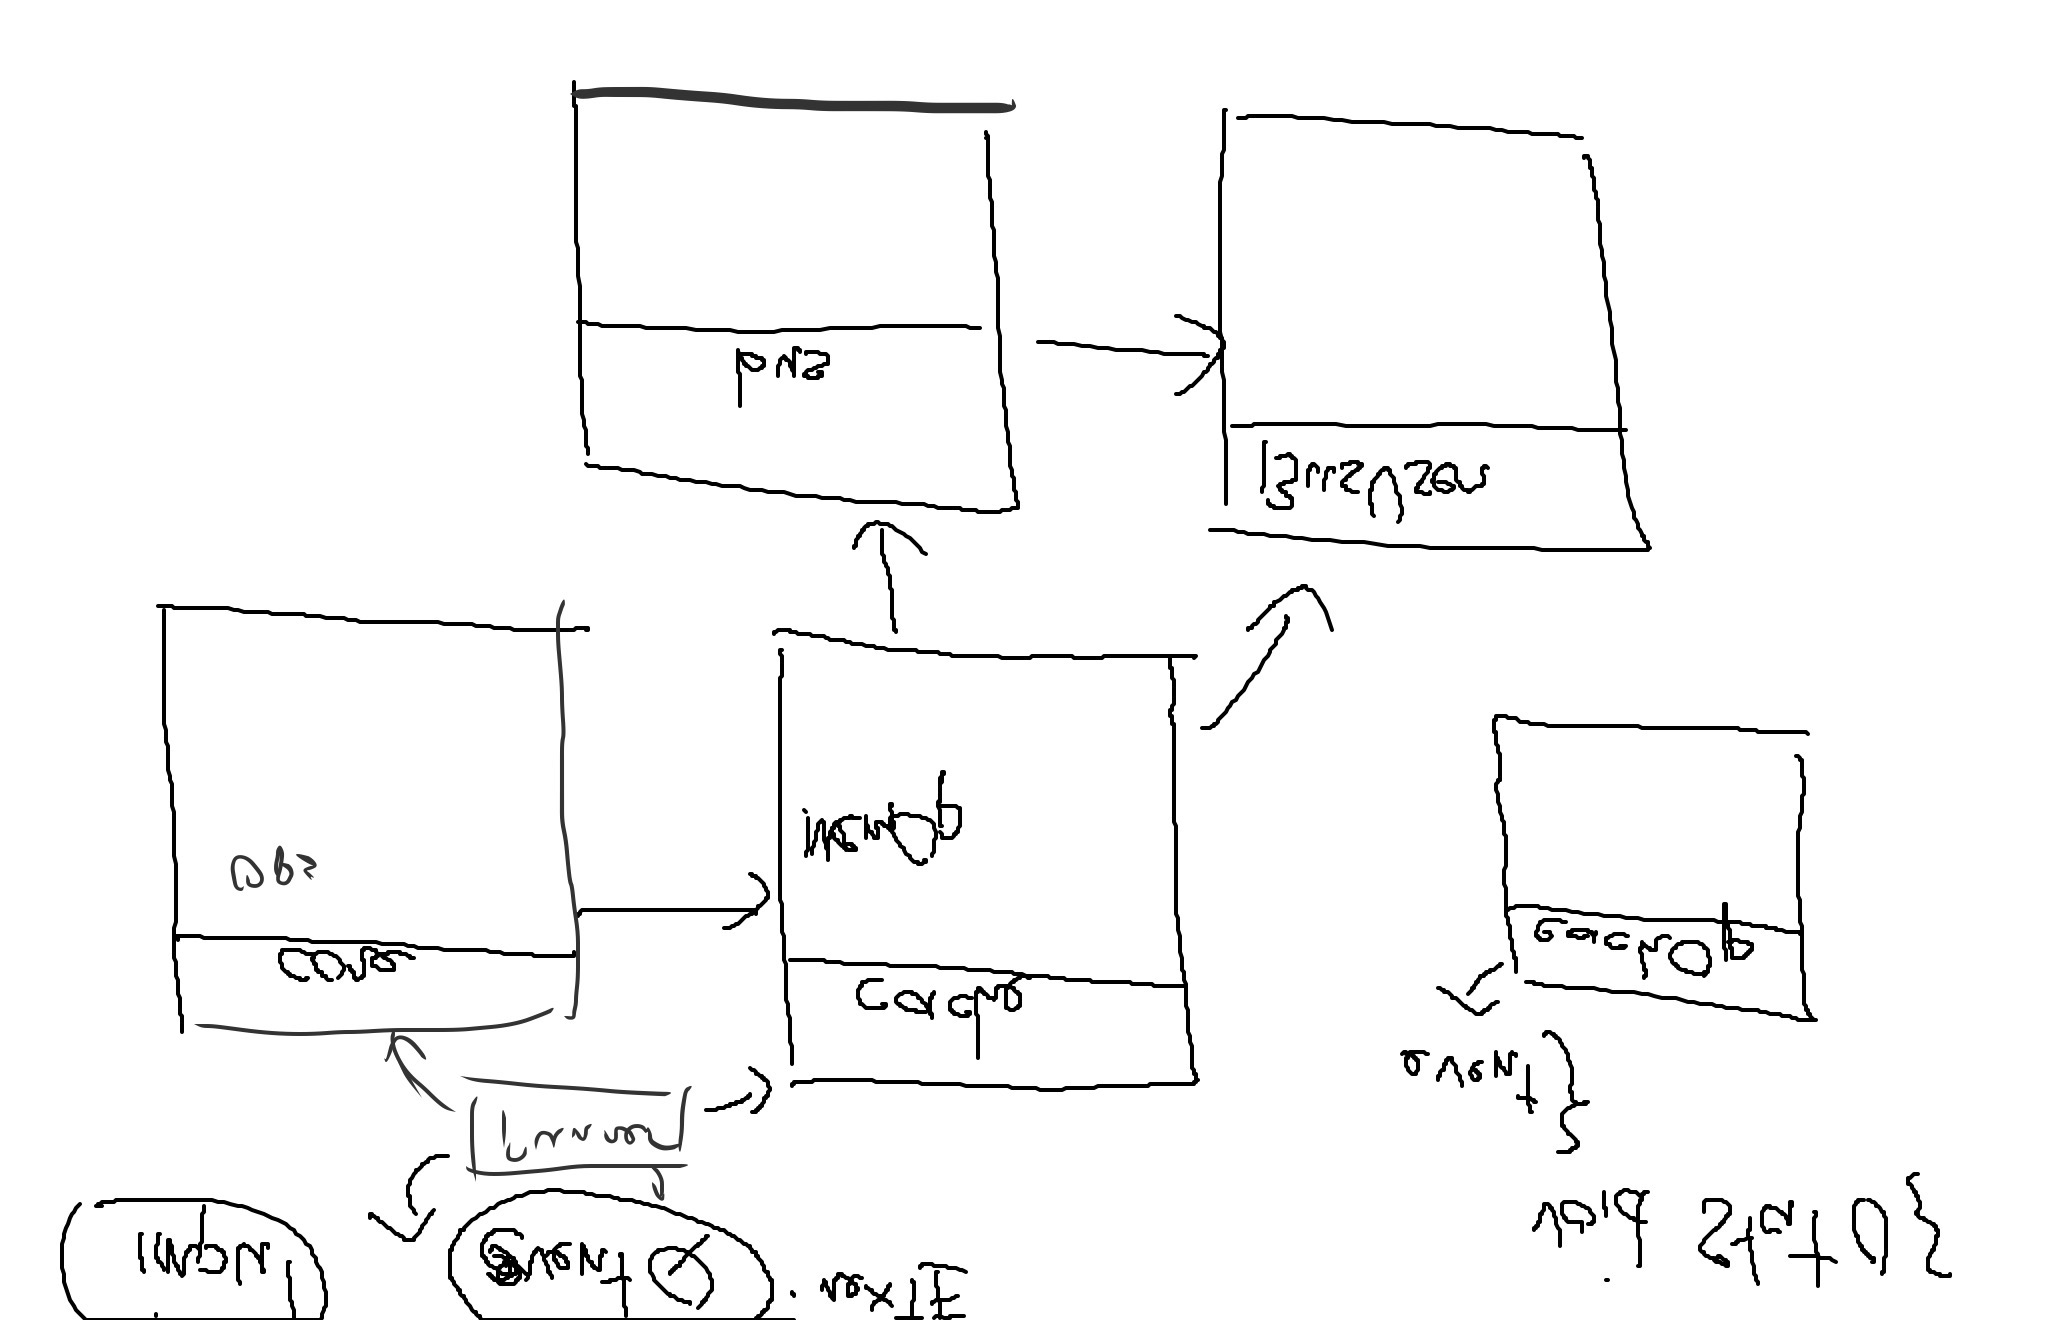 input
eventQ
. nextE
void stat() {
}
event
runner
core
Ops
cache
MemOp
eachOp
bus
BusUser